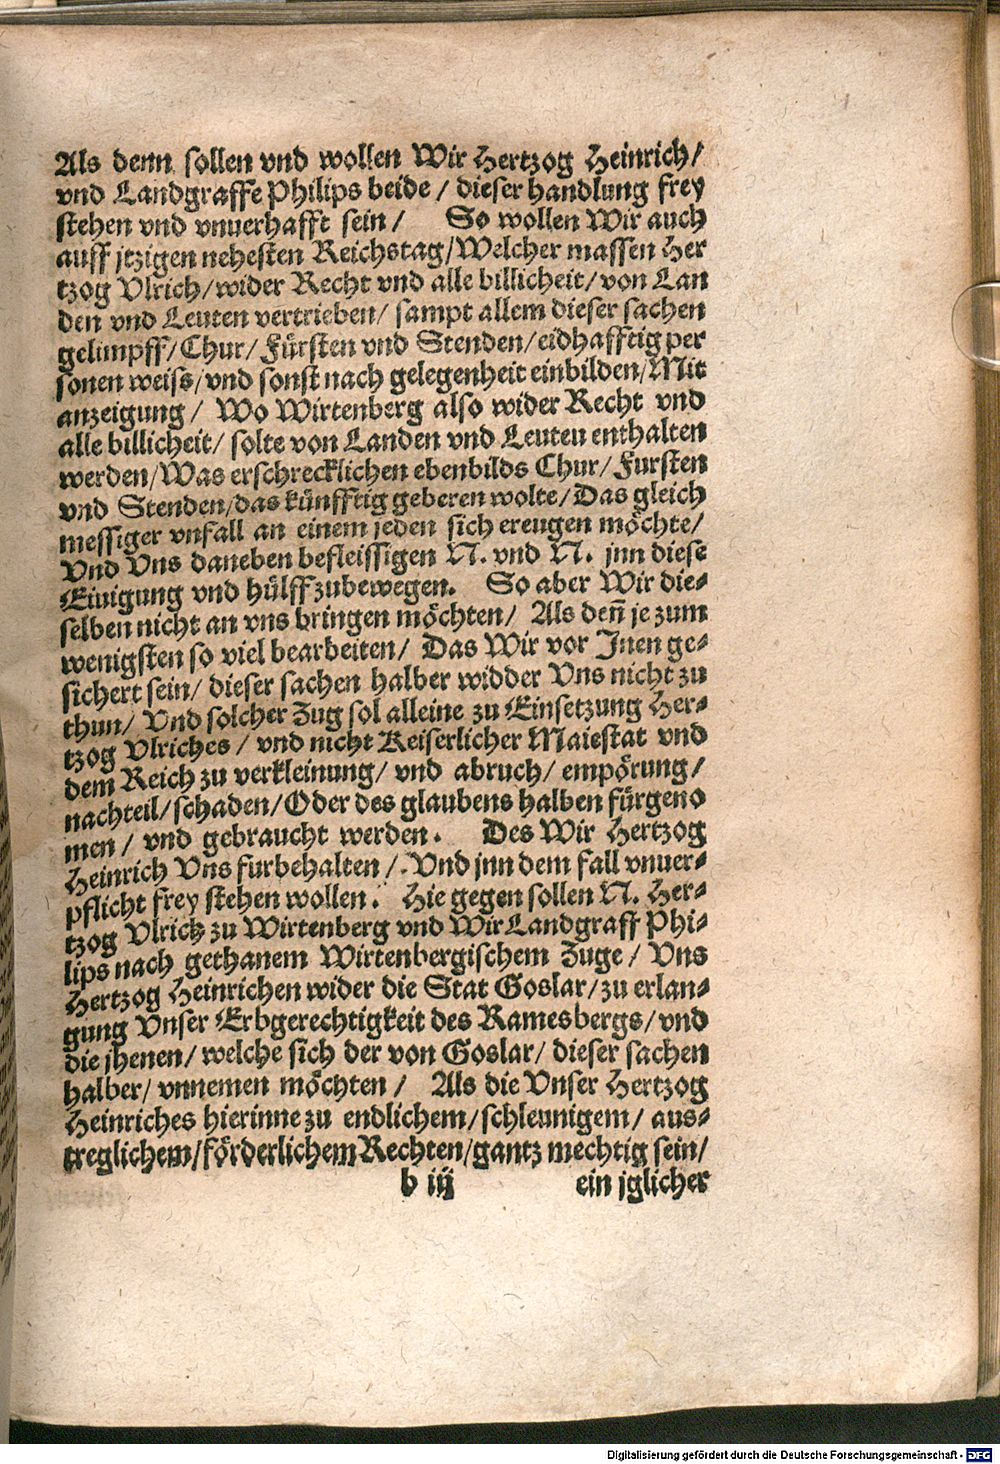 Als denn sollen vnd wollen Wir Hertzog Heinrich/
vnd Landgraffe Philips beide / dieser handlung frey
stehen vnd vnuerhafft sein / So wollen Wir auch
auff jtzigen nehesten Reichstag/Welcher massen Her
tzog Vlrich/wider Recht vnd alle billicheit/von Lan
den vnd Leuten vertrieben/ sampt allem dieser sachen
gelimpff/Chur/ Fürsten vnd Stenden/eidhafftig per
sonen weiss/vnd sonst nach gelegenheit einbilden/Mit
anzeigung / Wo Wirtenberg also wider Recht vnd
alle billicheit/ solte von Landen vnd Leuten enthalten
werden/Was erschrecklichen ebenbilds Chur/ Fursten
vnd Stenden/das künfftig geberen wolte/Das gleich
messiger vnfall an einem jeden sich ereugen möchte/
Vnd Vns daneben befleissigen N. vnd N. jnn diese
Einigung vnd hülff zubewegen. So aber Wir die-
selben nicht an vns bringen möchten/ Als deñ je zum
wenigsten so viel bearbeiten/ Das Wir vor Inen ge-
sichert sein/ dieser sachen halber widder Vns nicht zu
thun/ Vnd solcher Zug sol alleine zu Einsetzung Her-
tzog Vlriches / vnd nicht Keiserlicher Maiestat vnd
dem Reich zu verkleinung/ vnd abruch/ empörung/
nachteil/schaden/Oder des glaubens halben fürgeno
men / vnd gebraucht werden. Des Wir Hertzog
Heinrich Vns furbehalten /. Vnd jnn dem fall vnuer-
pflicht frey stehen wollen. Hie gegen sollen N. Her-
tzog Vlrich zu Wirtenberg vnd Wir Landgraff Phi-
lips nach gethanem Wirtenbergischem Zuge / Vns
Hertzog Heinrichen wider die Stat Goslar/zu erlan-
gung Vnser Erbgerechtigkeit des Ramesbergs/vnd
die jhenen/ welche sich der von Goslar/ dieser sachen
halber/ vnnemen möchten / Als die Vnser Hertzog
Heinriches hierinne zu endlichem/schleunigem/ aus-
treglichem/förderlichem Rechten/gantz mechtig sein/
b iij ein jglicher
Digitalisierung gefördert durch die Deutsche Forschungsgemeinschaft - DFG